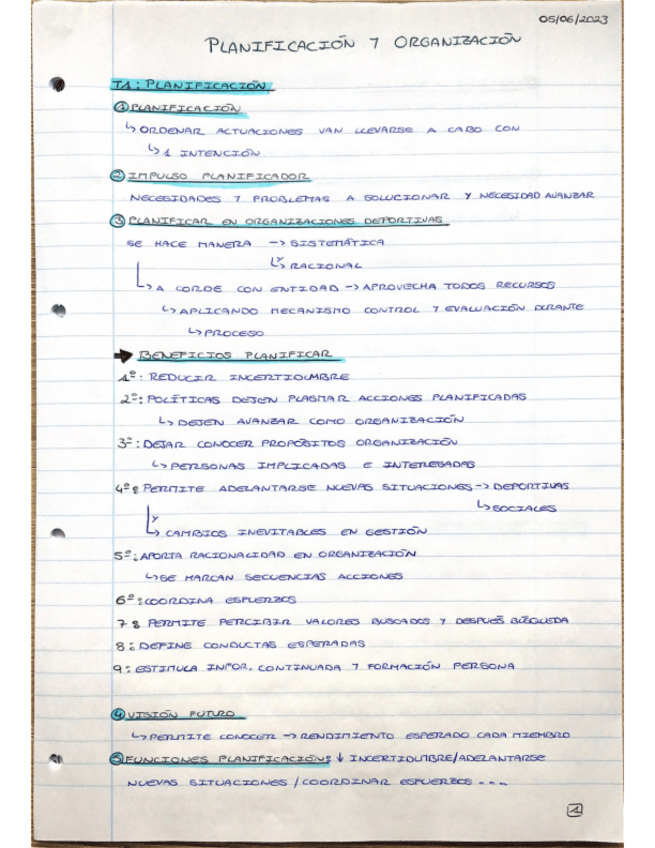 05/06/2023
PLANIFICACIÓN Y ORGANIZACIÓN
T1: PLANIFICACIÓN
① PLANIFICACIÓN
↳ ORDENAR ACTUACIONES VAN LLEVARSE A CABO CON
↳ 1 INTENCIÓN
② IMPULSO PLANIFICADOR
NECESIDADES Y PROBLEMAS A SOLUCIONAR Y NECESIDAD AVANZAR
③ PLANIFICAR EN ORGANIZACIONES DEPORTIVAS
SE HACE MANERA -> SISTEMÁTICA
↳ Y RACIONAL
↳ A CORDE CON ENTIDAD -> APROVECHA TODOS RECURSOS
↳ APLICANDO MECANISMO CONTROL Y EVALUACIÓN DURANTE
↳ PROCESO
➡ BENEFICIOS PLANIFICAR
1º: REDUCIR INCERTIDUMBRE
2º: POLÍTICAS DEJEN PLASMAR ACCIONES PLANIFICADAS
↳ DEJEN AVANZAR COMO ORGANIZACIÓN
3º: DEJAR CONOCER PROPÓSITOS ORGANIZACIÓN
↳ PERSONAS IMPLICADAS E INTERESADAS
4º: PERMITE ADELANTARSE NUEVAS SITUACIONES -> DEPORTIVAS
↳ SOCIALES
Y
↳ CAMBIOS INEVITABLES EN GESTIÓN
5º: APORTA RACIONALIDAD EN ORGANIZACIÓN
↳ SE MARCAN SECUENCIAS ACCIONES
6º: COORDINA ESFUERZOS
7: PERMITE PERCIBIR VALORES BUSCADOS Y DESPUÉS BÚSQUEDA
8: DEFINE CONDUCTAS ESPERADAS
9: ESTIMULA INFOR. CONTINUADA Y FORMACIÓN PERSONA
④ VISIÓN FUTURO
↳ PERMITE CONOCER -> RENDIMIENTO ESPERADO CADA MIEMBRO
⑤ FUNCIONES PLANIFICACIÓN: ↓ INCERTIDUMBRE/ADELANTARSE
NUEVAS SITUACIONES / COORDINAR ESFUERZOS ...
1